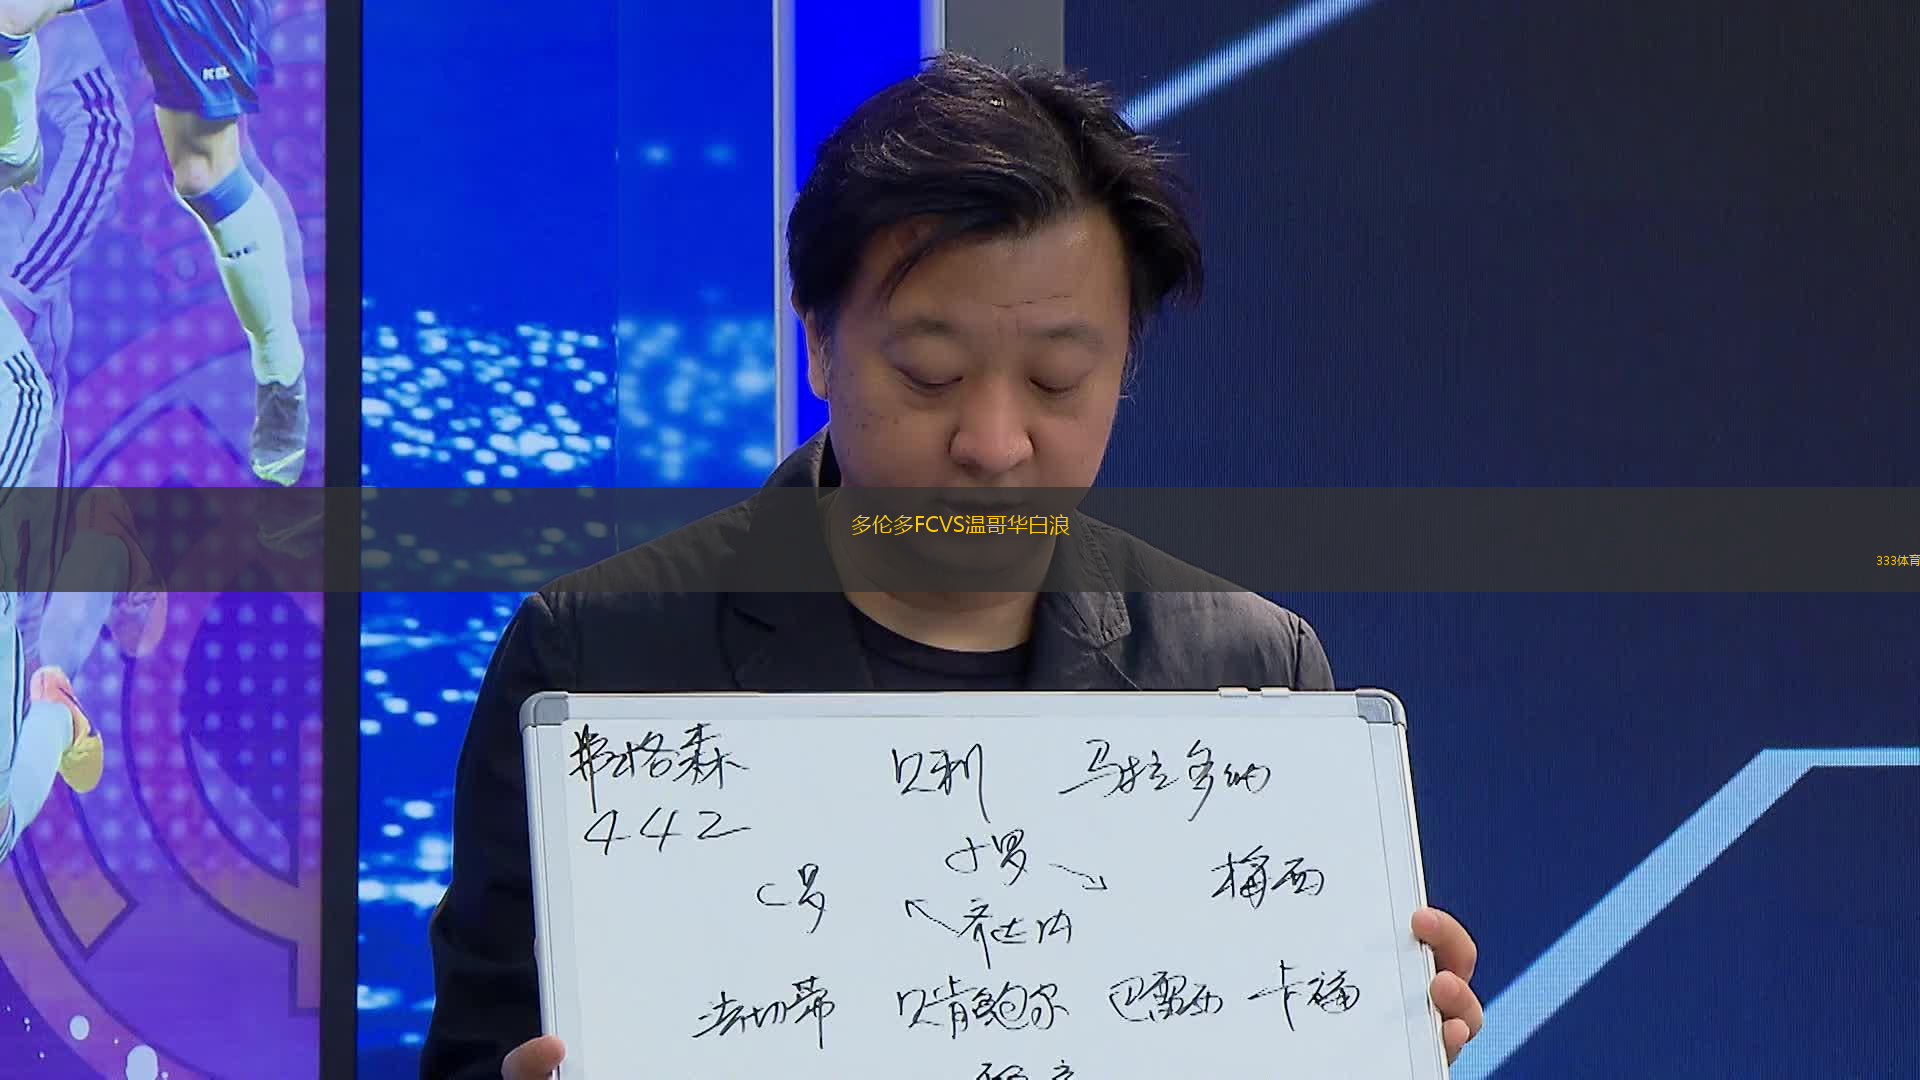 多伦多FCVS温哥华白浪
333体育
弗格森 贝利 马拉多纳
442
小罗
C罗 梅西
齐达内
法切蒂 贝肯鲍尔 巴雷西 卡福